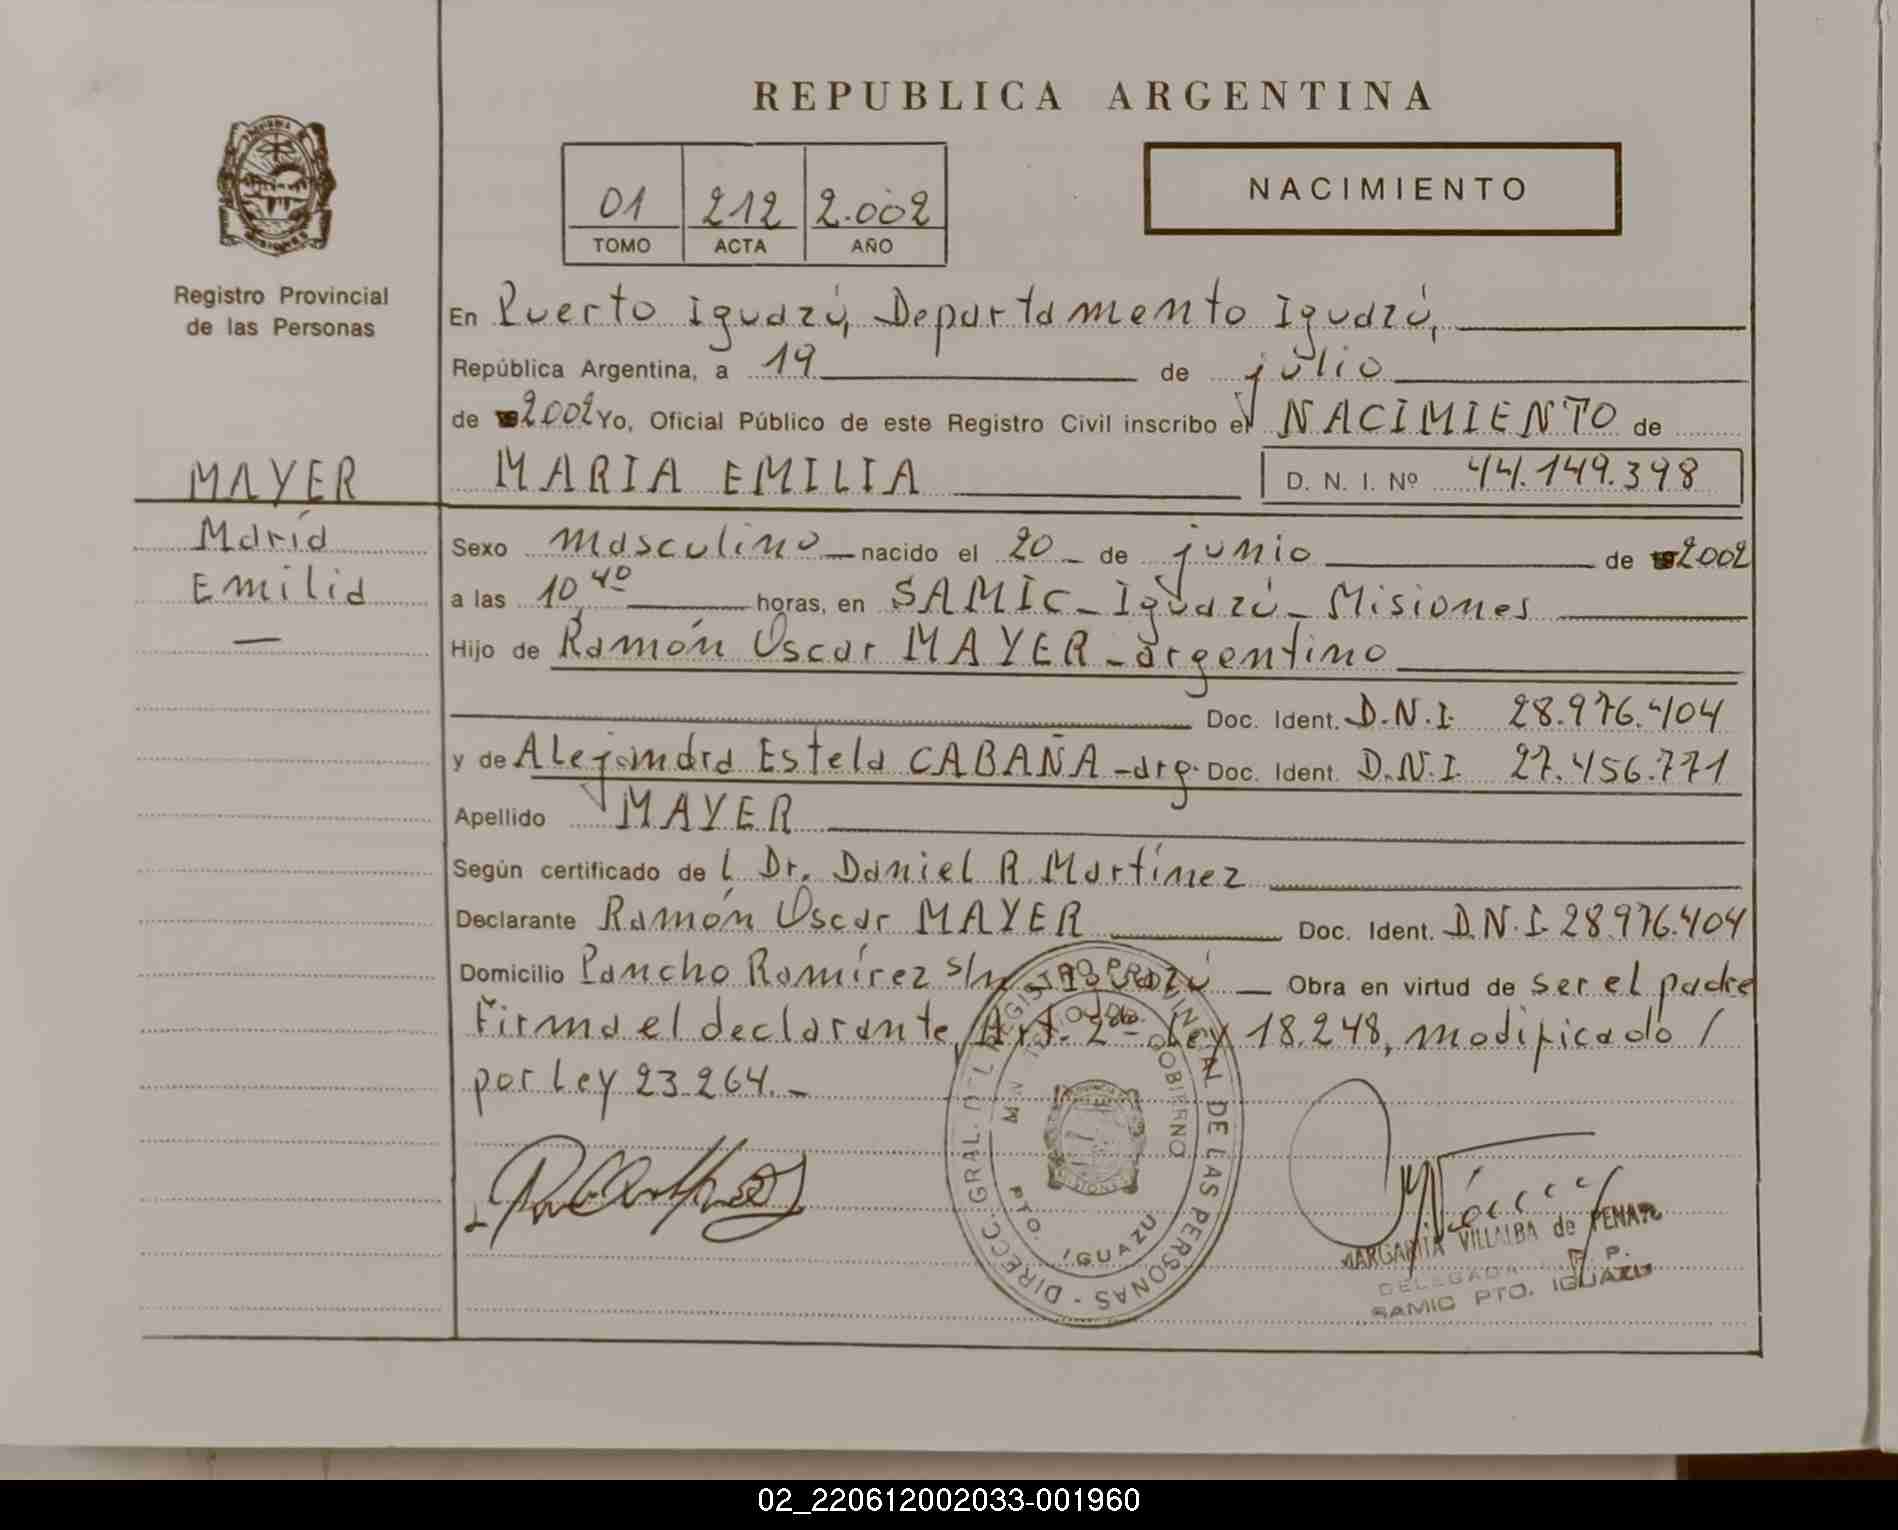 REPUBLICA ARGENTINA
NACIMIENTO
01 212 2.002
TOMO ACTA AÑO
Registro Provincial
de las Personas
En Puerto Iguazú, Departamento Iguazú,
República Argentina, a 19 de julio
de 2002 Yo, Oficial Público de este Registro Civil inscribo el NACIMIENTO de
MARIA EMILIA D. N. I. Nº 44.149.398
MAYER
María
Emilia
Sexo masculino nacido el 20 de junio de 2002
a las 10,40 horas, en SAMIC - Iguazú - Misiones
Hijo de Ramón Oscar MAYER - argentino
Doc. Ident. D.N.I. 28.976.404
y de Alejandra Estela CABAÑA - arg. Doc. Ident. D.N.I. 27.456.771
Apellido MAYER
Según certificado de l Dr. Daniel R. Martínez
Declarante Ramón Oscar MAYER Doc. Ident. D.N.I. 28976.404
Domicilio Pancho Ramírez s/n Iguazú Obra en virtud de ser el padre
Firma el declarante, Art. 2do Ley 18.248, modificado /
por Ley 23.264.-
DIRECC. GRAL. DEL REGISTRO PROVINCIAL DE LAS PERSONAS
GOBIERNO
PTO. IGUAZU
MARGARITA VILLALBA de
DELEGADA R. P.
SAMIC PTO. IGUAZU
02_220612002033-001960